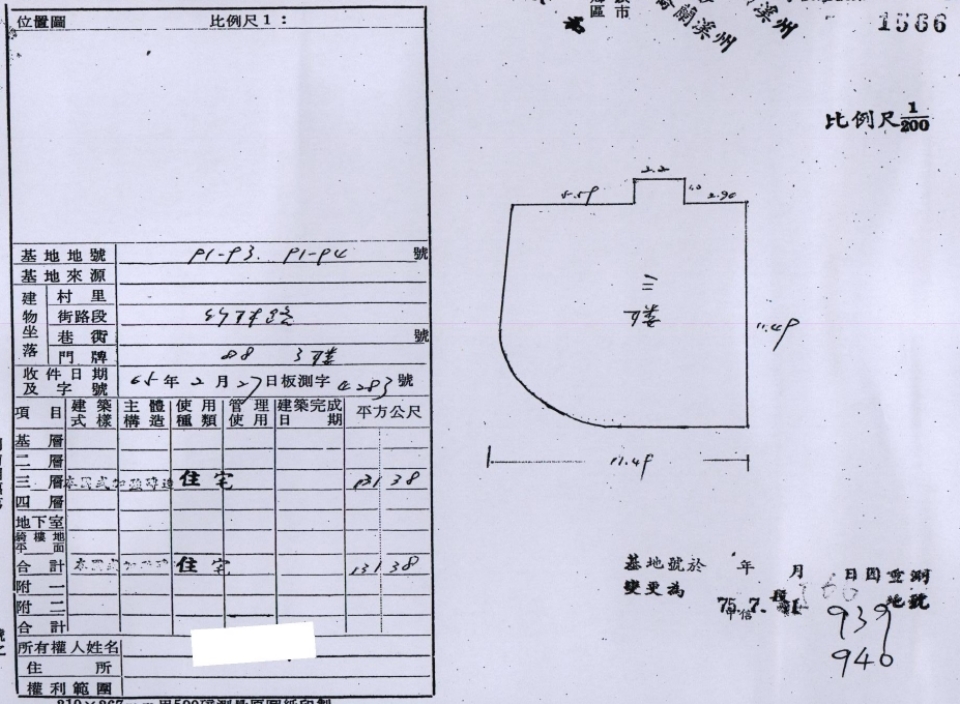 位置圖 比例尺1：
市
區
蘭溪州
溪州
1566
比例尺 1/200
2.2
1.0
2.90
三
樓
11.49
11.49
基地地號 91-93. 91-94 號
基地來源
建物坐落
村里
街路段
巷衖 號
門牌 88 3樓
收件日期及字號 65年2月27日板測字4283號
項目 建築式樣 主體構造 使用種類 管理使用 建築完成日期 平方公尺
基層
二層
三層 本國式加強磚造 住宅 131 38
四層
地下室
騎樓地平面
合計 住宅 131 38
附一
附二
合計
所有權人姓名
住所
權利範圍
基地號於 年 月 日因重測
變更為 段 地號
75.7.
939
940